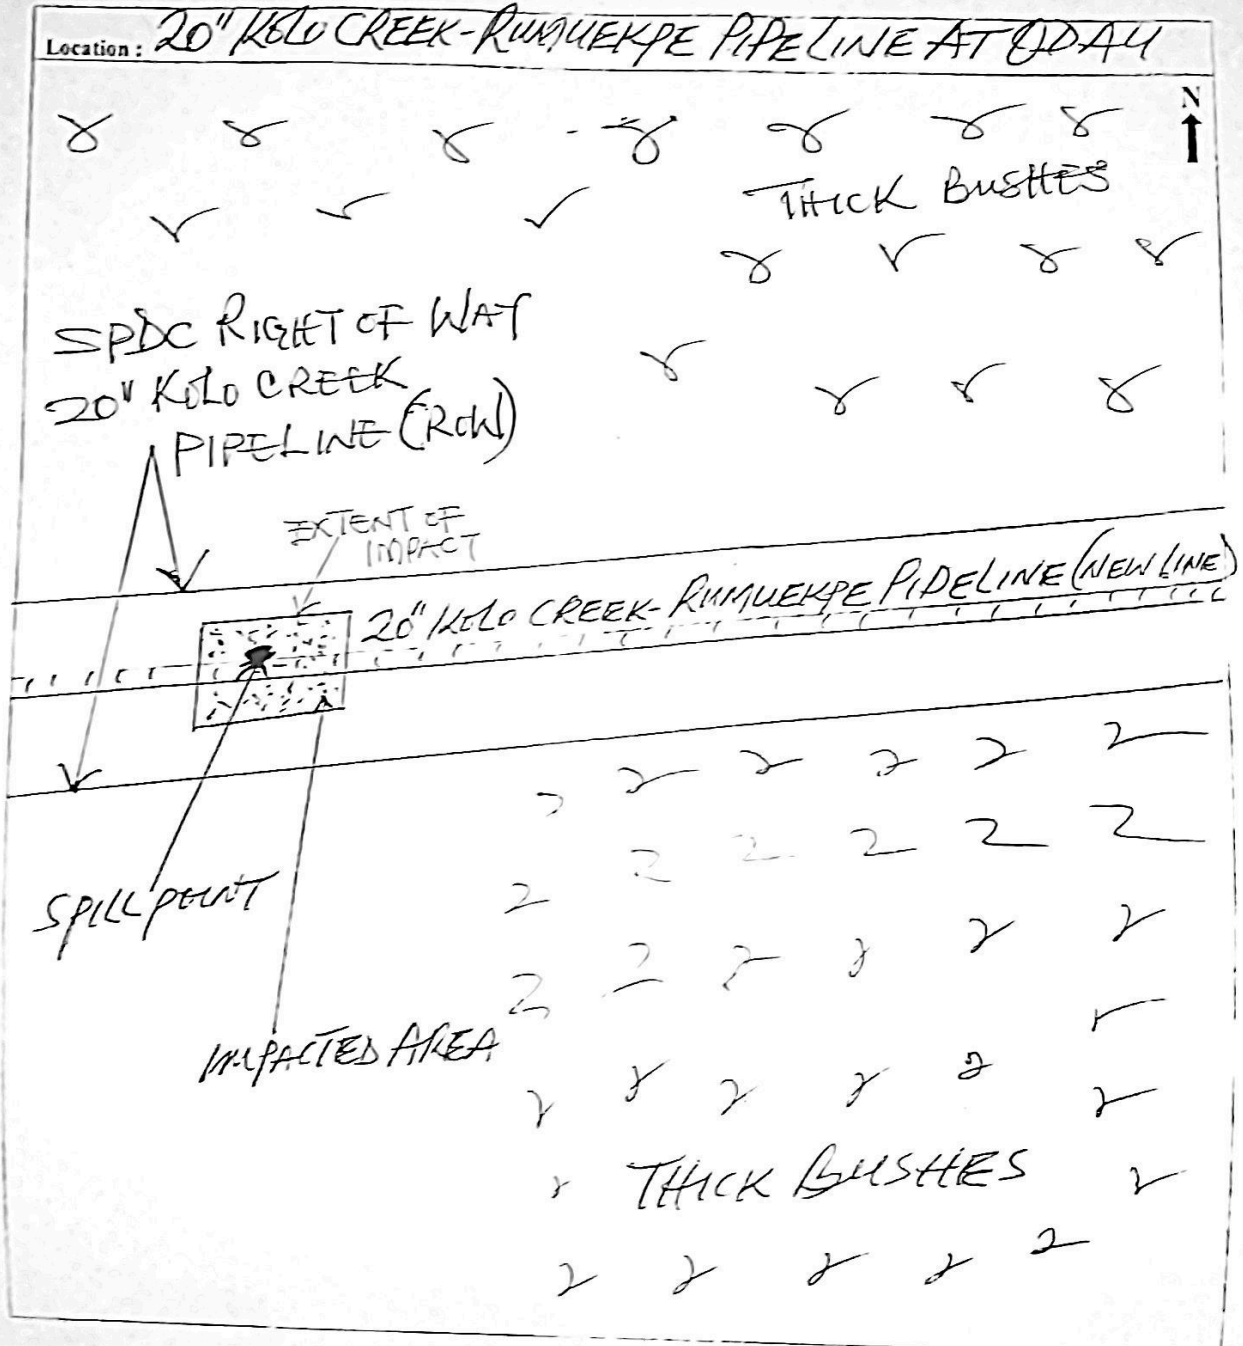 Location : 20" KOLO CREEK-RUMUEKPE PIPELINE AT ODAU
N
THICK BUSHES
SPDC RIGHT OF WAY
20" KOLO CREEK
PIPELINE (ROW)
EXTENT OF
IMPACT
20" KOLO CREEK-RUMUEKPE PIDELINE (NEW LINE)
SPILL POINT
IMPACTED AREA
THICK BUSHES